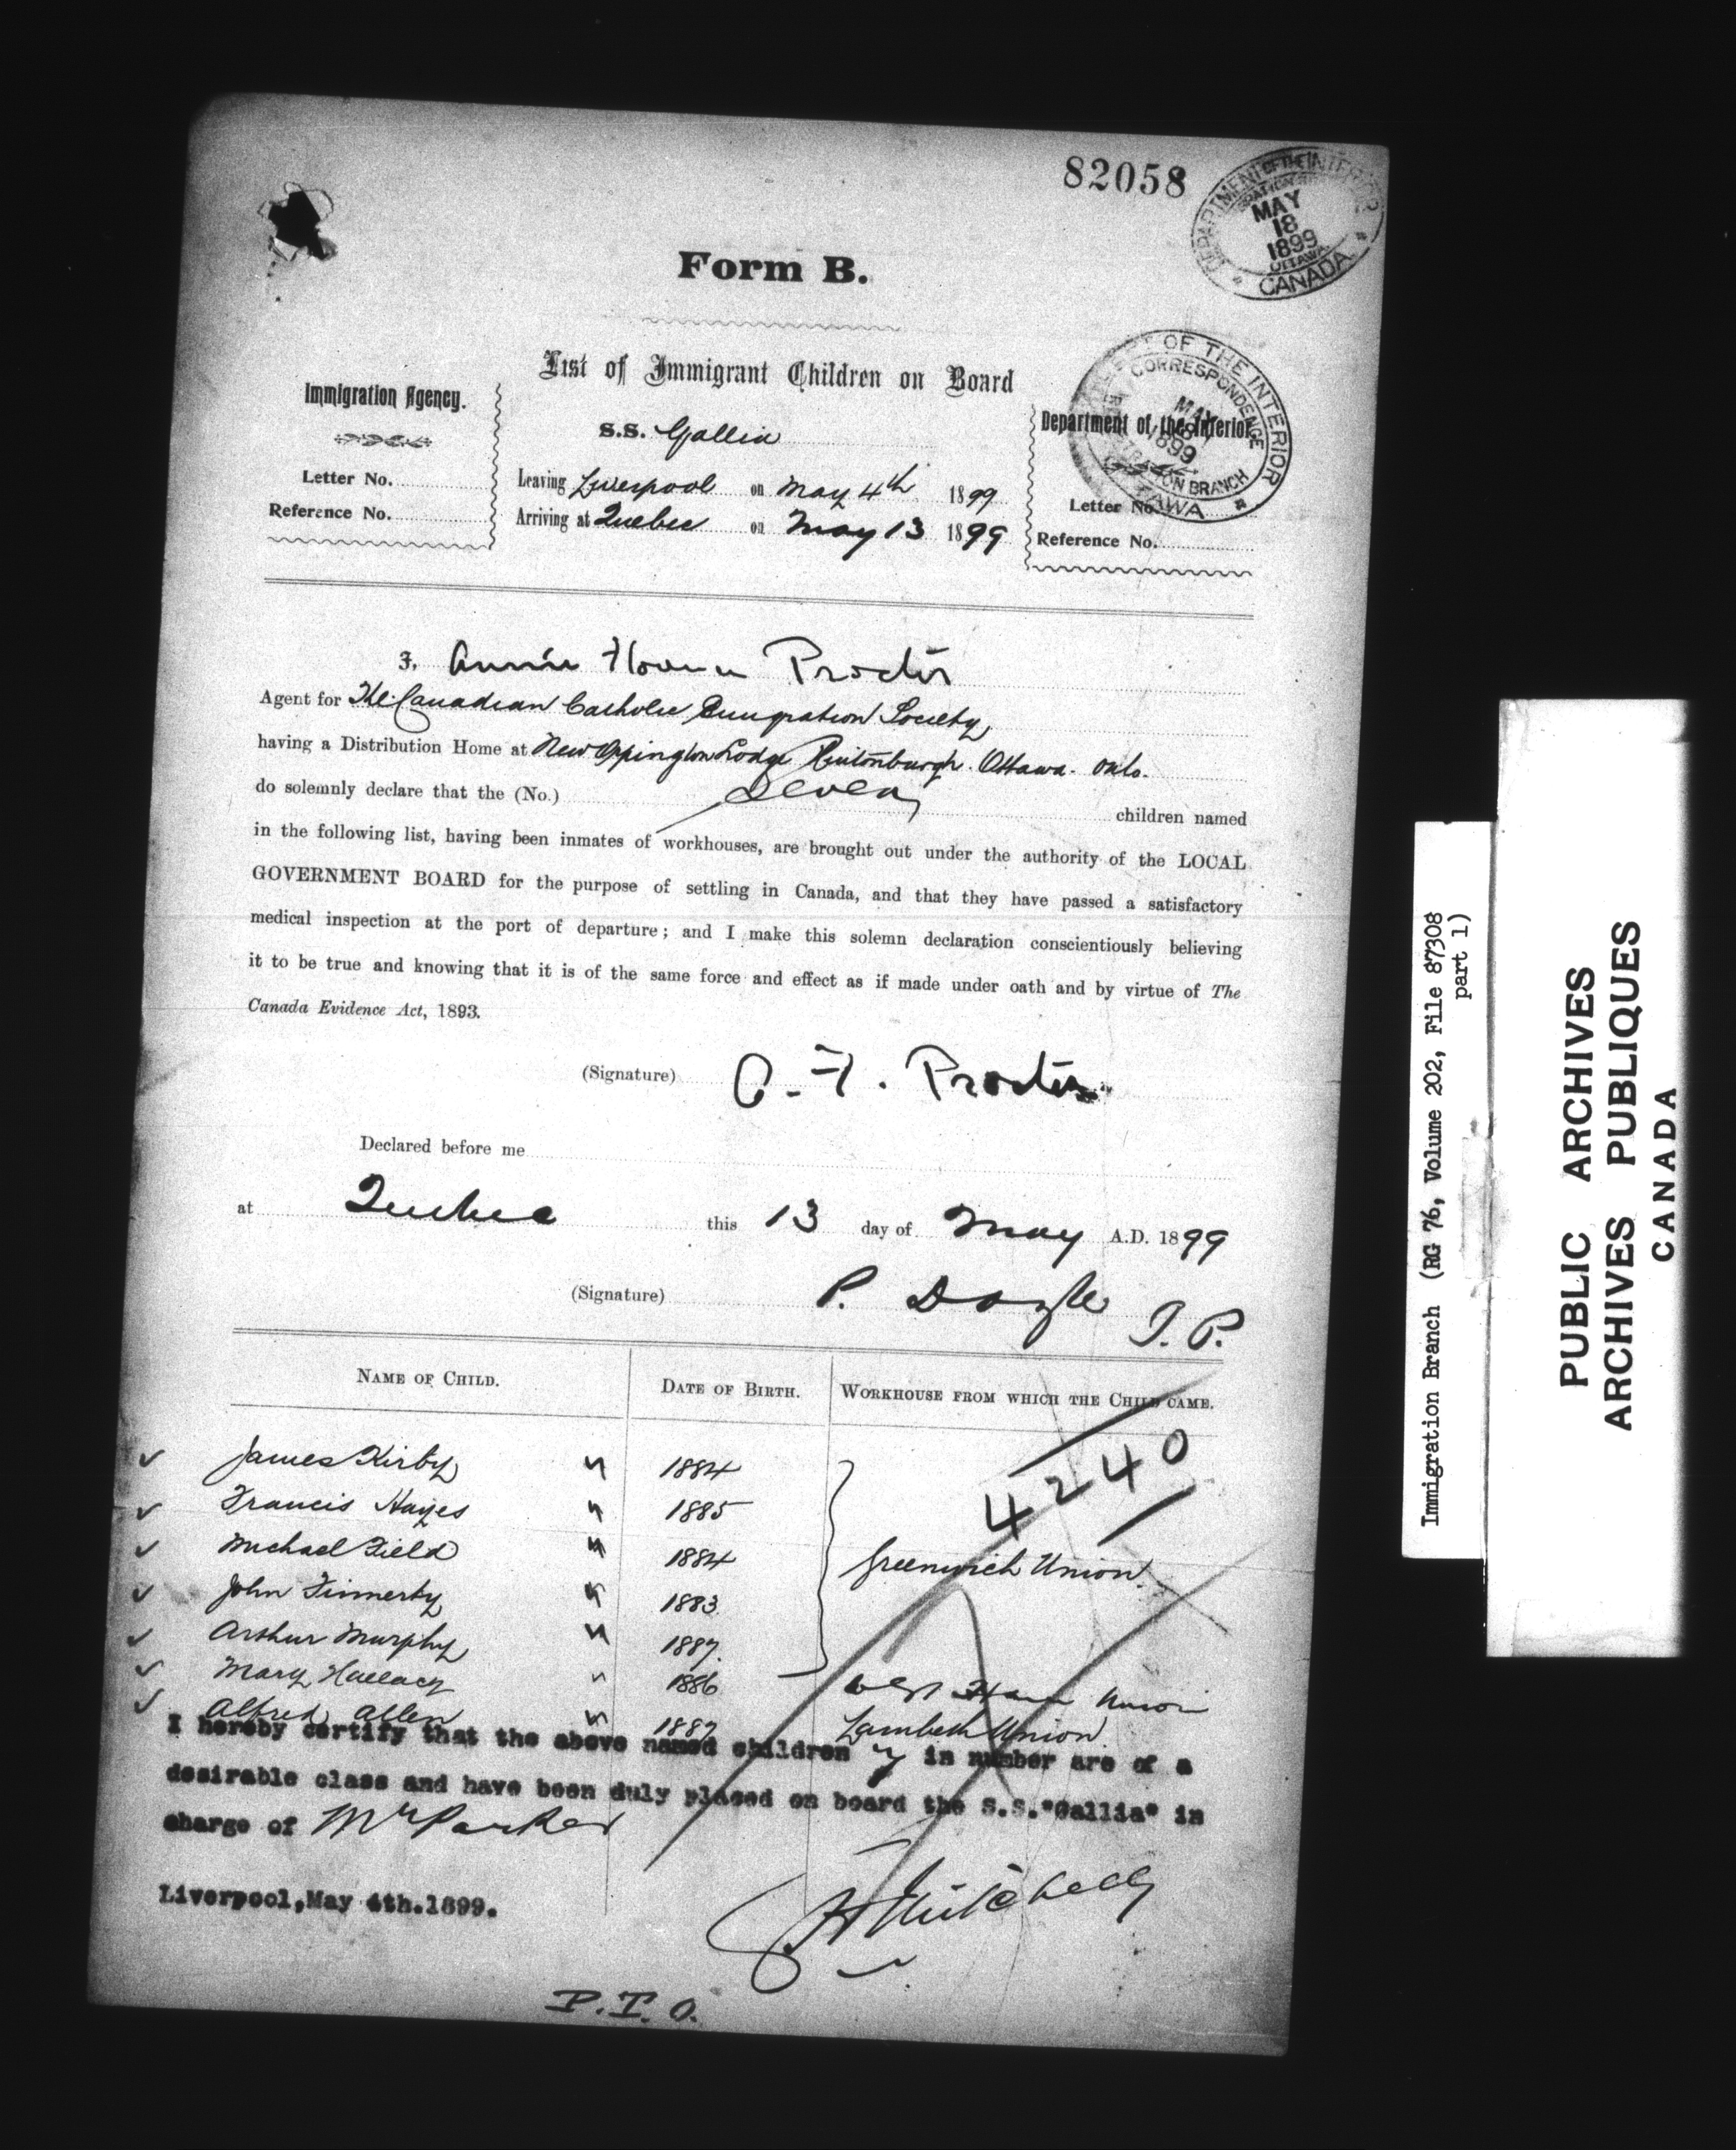 82058
DEPARTMENT OF THE INTERIOR
MAY
18
1899
OTTAWA
CANADA
Form B.
List of Immigrant Children on Board
Immigration Agency.
S.S. Gallia
Department of the Interior
OF THE INTERIOR
CORRESPONDENCE
MAY
1899
BRANCH
Letter No.
Leaving Liverpool on May 4th 1899
Letter No.
Reference No.
Arriving at Quebec on May 13 1899
Reference No.
I, Annie Proctor
Agent for The Canadian Catholic Emigration Society,
having a Distribution Home at New Orpington Lodge Hintonburgh. Ottawa. Onto.
do solemnly declare that the (No.) Seven children named
in the following list, having been inmates of workhouses, are brought out under the authority of the LOCAL
GOVERNMENT BOARD for the purpose of settling in Canada, and that they have passed a satisfactory
medical inspection at the port of departure; and I make this solemn declaration conscientiously believing
it to be true and knowing that it is of the same force and effect as if made under oath and by virtue of The
Canada Evidence Act, 1893.
(Signature) A. F. Procter
Declared before me
at Quebec this 13 day of May A.D. 1899
(Signature) P. Doyle J.P.
NAME OF CHILD. DATE OF BIRTH. WORKHOUSE FROM WHICH THE CHILD CAME.
4240
James Kirby 1884
Francis Hayes 1885
Michael Field 1884 Greenwich Union
John Finnerty 1883
Arthur Murphy 1887.
Mary 1886 West Ham Union
Alfred Allen 1887 Lambeth Union.
I hereby certify that the above named children 7 in number are of a
desirable class and have been duly placed on board the S.S."Gallia" in
charge of Mr Parker
Liverpool,May 4th.1899.
Mitchell
P.T.O.
Immigration Branch (RG 76, Volume 202, File 87308
part 1)
PUBLIC ARCHIVES
ARCHIVES PUBLIQUES
CANADA